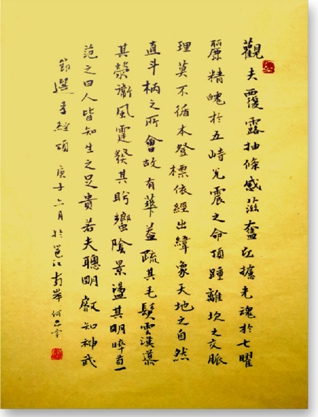 觀夫覆露抽條盛滋奮丘攄光魂於七曜
麗精魄於五峙光震之命頂踵離坎之交脈
理莫不循本登標依經出緯象天地之自然
直斗柄之所會故有華蓋疏其毛髮雲漢慕
其榮衛風霆發其肸蠁陰景盪其明晦首一
范之曰人皆知生之足貴若夫聰明叡知神武
節選 庚子六月於邕江